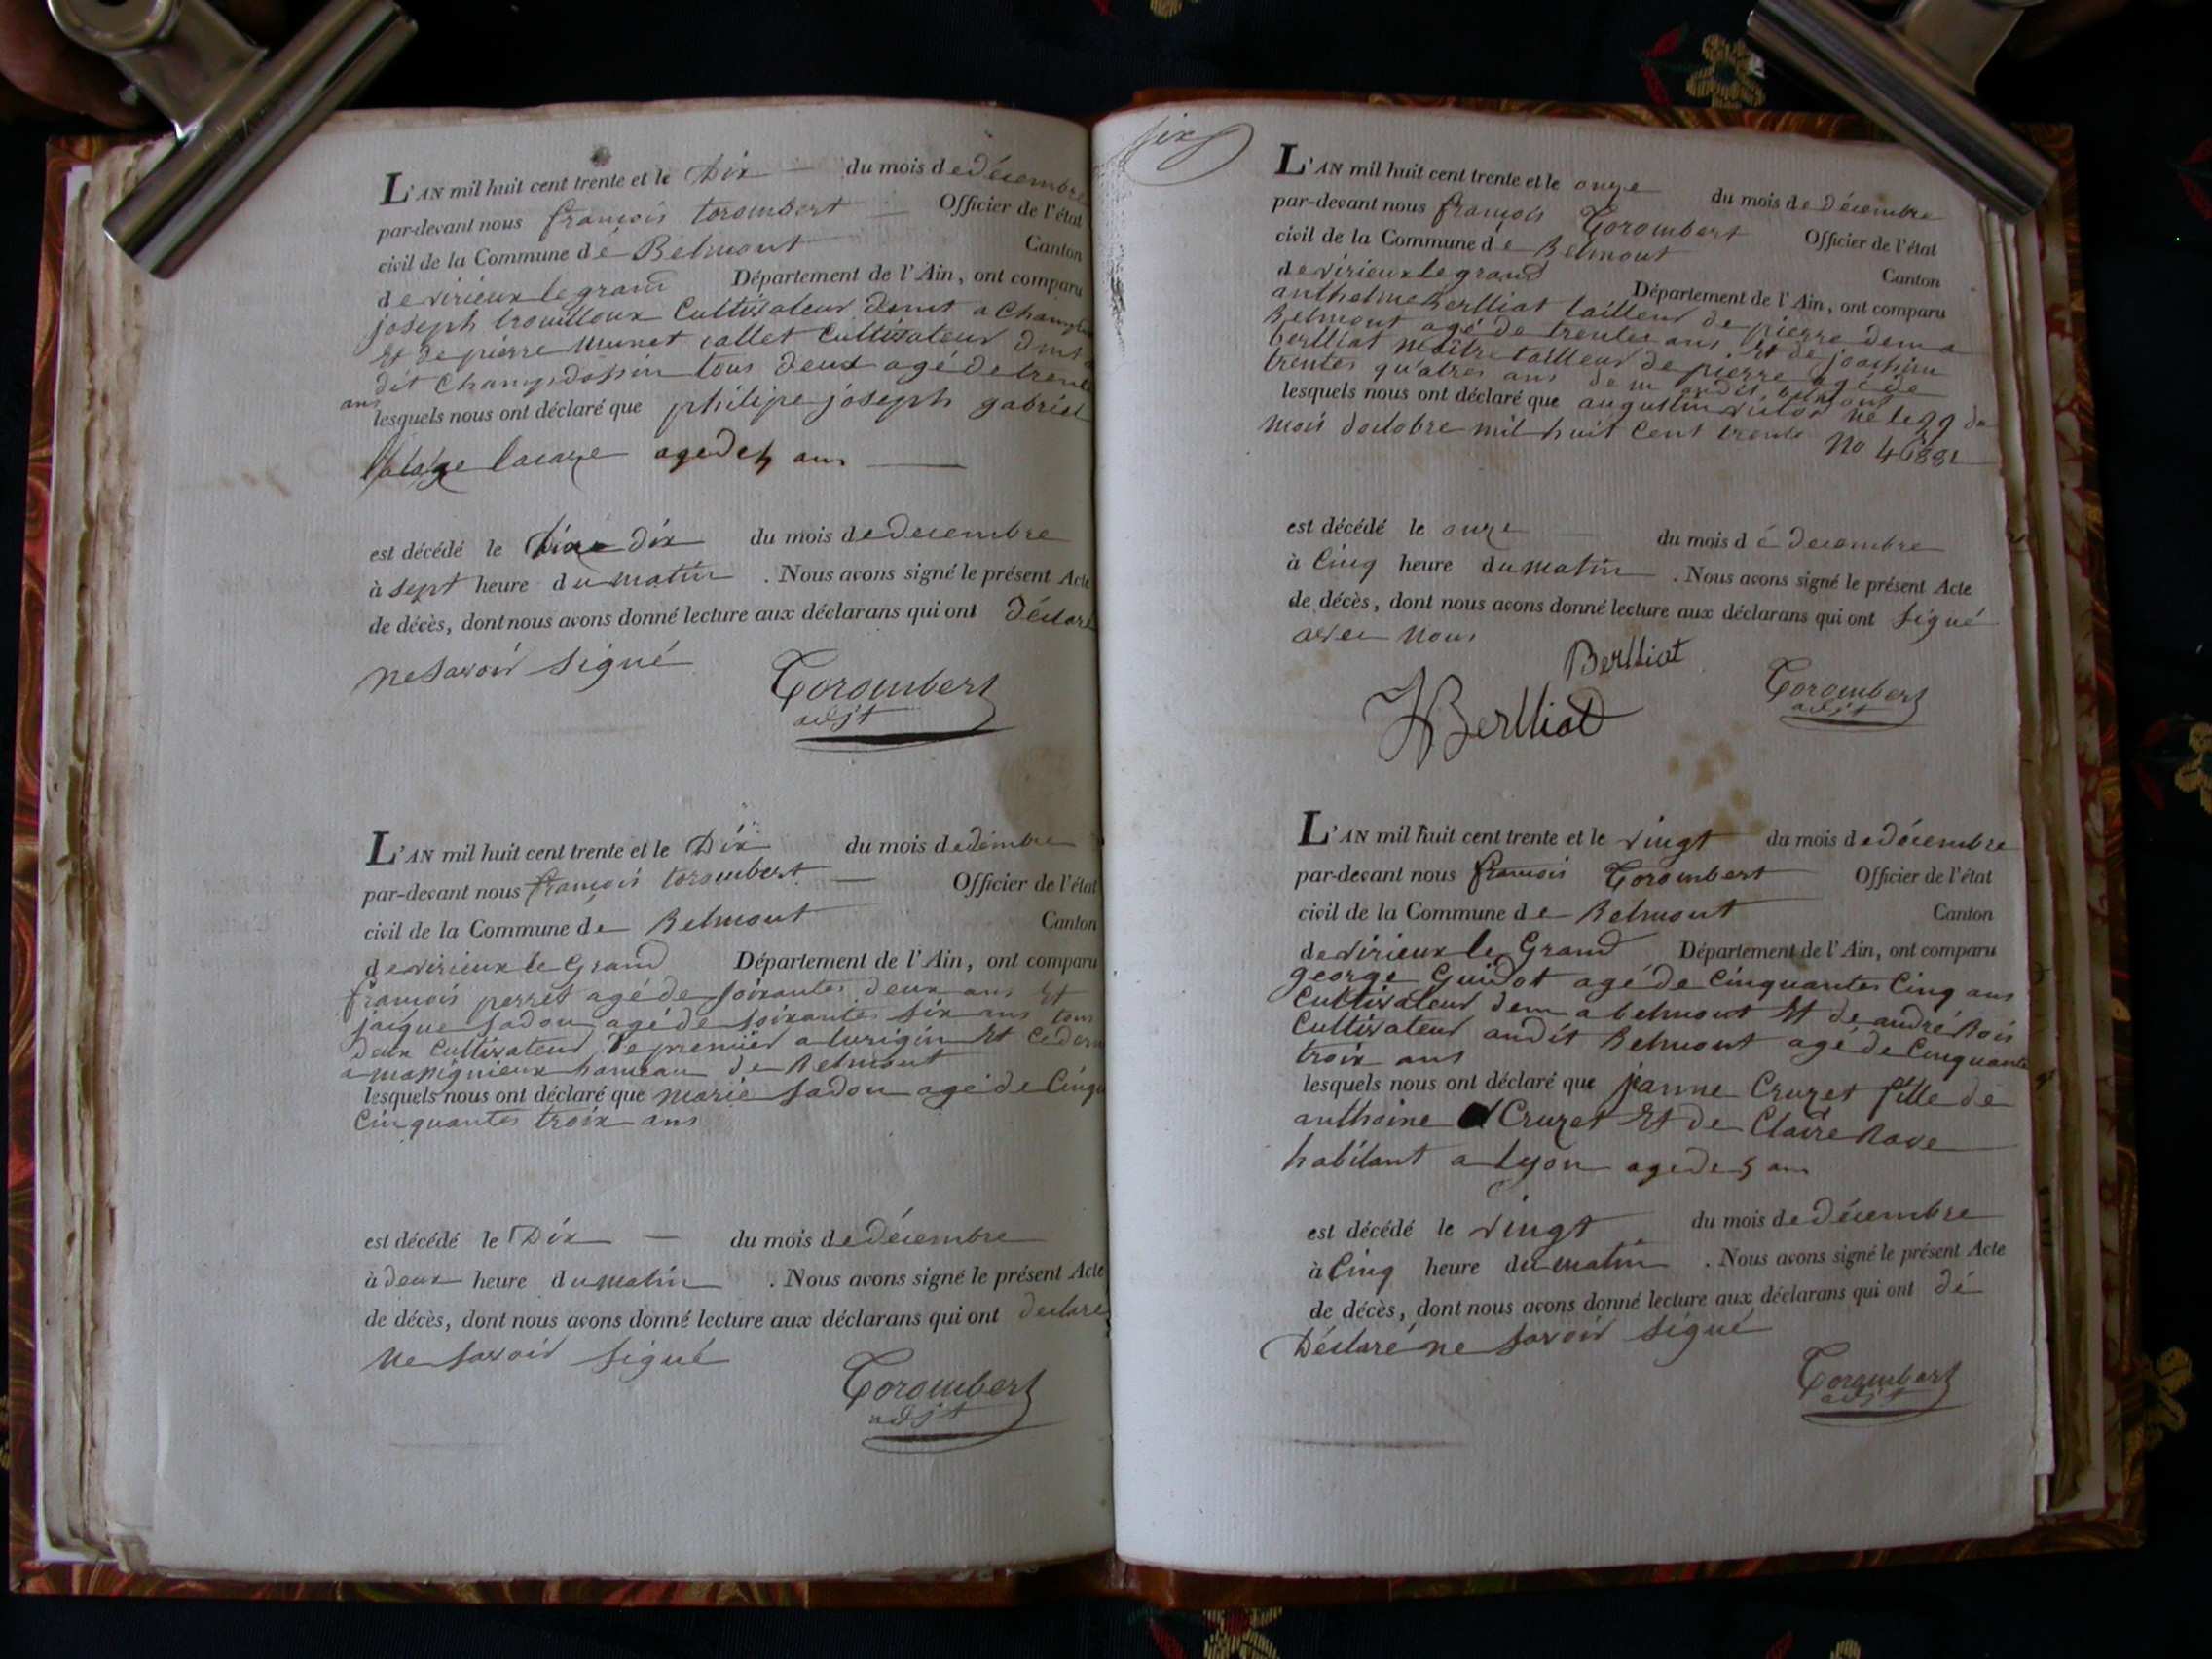 L'AN mil huit cent trente et le Dix du mois de décembre
par-devant nous françois torombert Officier de l'état
civil de la Commune de Belmont Canton
de virieux le grand Département de l'Ain, ont comparu
joseph trouilloux Cultivateur demt a
Et de pierre Munet Cultivateur
dit Champdossin tous deux agé de trente
ans
lesquels nous ont déclaré que philipe joseph gabriel
agé de 4 ans
est décédé le dix du mois de decembre
à sept heure du matin . Nous avons signé le présent Acte
de décès, dont nous avons donné lecture aux déclarans qui ont déclaré
ne savoir signé
Torombert
adjt
L'AN mil huit cent trente et le Dix du mois de
par-devant nous françois torombert Officier de l'état
civil de la Commune de Belmont Canton
de virieux le Grand Département de l'Ain, ont comparu
françois perret agé de soixantes deux ans Et
jacque sadou agé de soixantes six ans tous
deux Cultivateur le premier a lurigin Et
a massignieux hameau de Belmont
lesquels nous ont déclaré que marie sadou agé de
Cinquantes troix ans
est décédé le Dix du mois de décembre
à deux heure du matin . Nous avons signé le présent Acte
de décès, dont nous avons donné lecture aux déclarans qui ont declaré
ne savoir signé
Torombert
adjt
six
L'AN mil huit cent trente et le onze du mois de décembre
par-devant nous françois Torombert Officier de l'état
civil de la Commune de Belmont Canton
de virieux le grand Département de l'Ain, ont comparu
anthelme Berlliat tailleur de pierre dem a
Belmont agé de trentes ans Et de joachim
berlliat maître tailleur de pierre agé de
trentes quatres ans dem audit belmont
lesquels nous ont déclaré que augustin victor né le 29 du
mois doctobre mil huit Cent trente No 46881
est décédé le onze du mois de decembre
à Cinq heure du matin . Nous avons signé le présent Acte
de décès, dont nous avons donné lecture aux déclarans qui ont signé
avec nous
Berlliat
Berlliat
Torombert
adjt
L'AN mil huit cent trente et le vingt du mois de décembre
par-devant nous françois Torombert Officier de l'état
civil de la Commune de Belmont Canton
de virieux le Grand Département de l'Ain, ont comparu
george Guidot agé de Cinquantes Cinq ans
Cultivateur dem a belmont Et de andré Bois
Cultivateur audit Belmont agé de Cinquante
troix ans
lesquels nous ont déclaré que janne Cruzet fille de
anthoine Cruzet Et de Claire Rave
habitant a Lyon agé de 5 an
est décédé le vingt du mois de décembre
à Cinq heure du matin . Nous avons signé le présent Acte
de décès, dont nous avons donné lecture aux déclarans qui ont dé
Déclaré ne savoir signé
Torombert
adjt